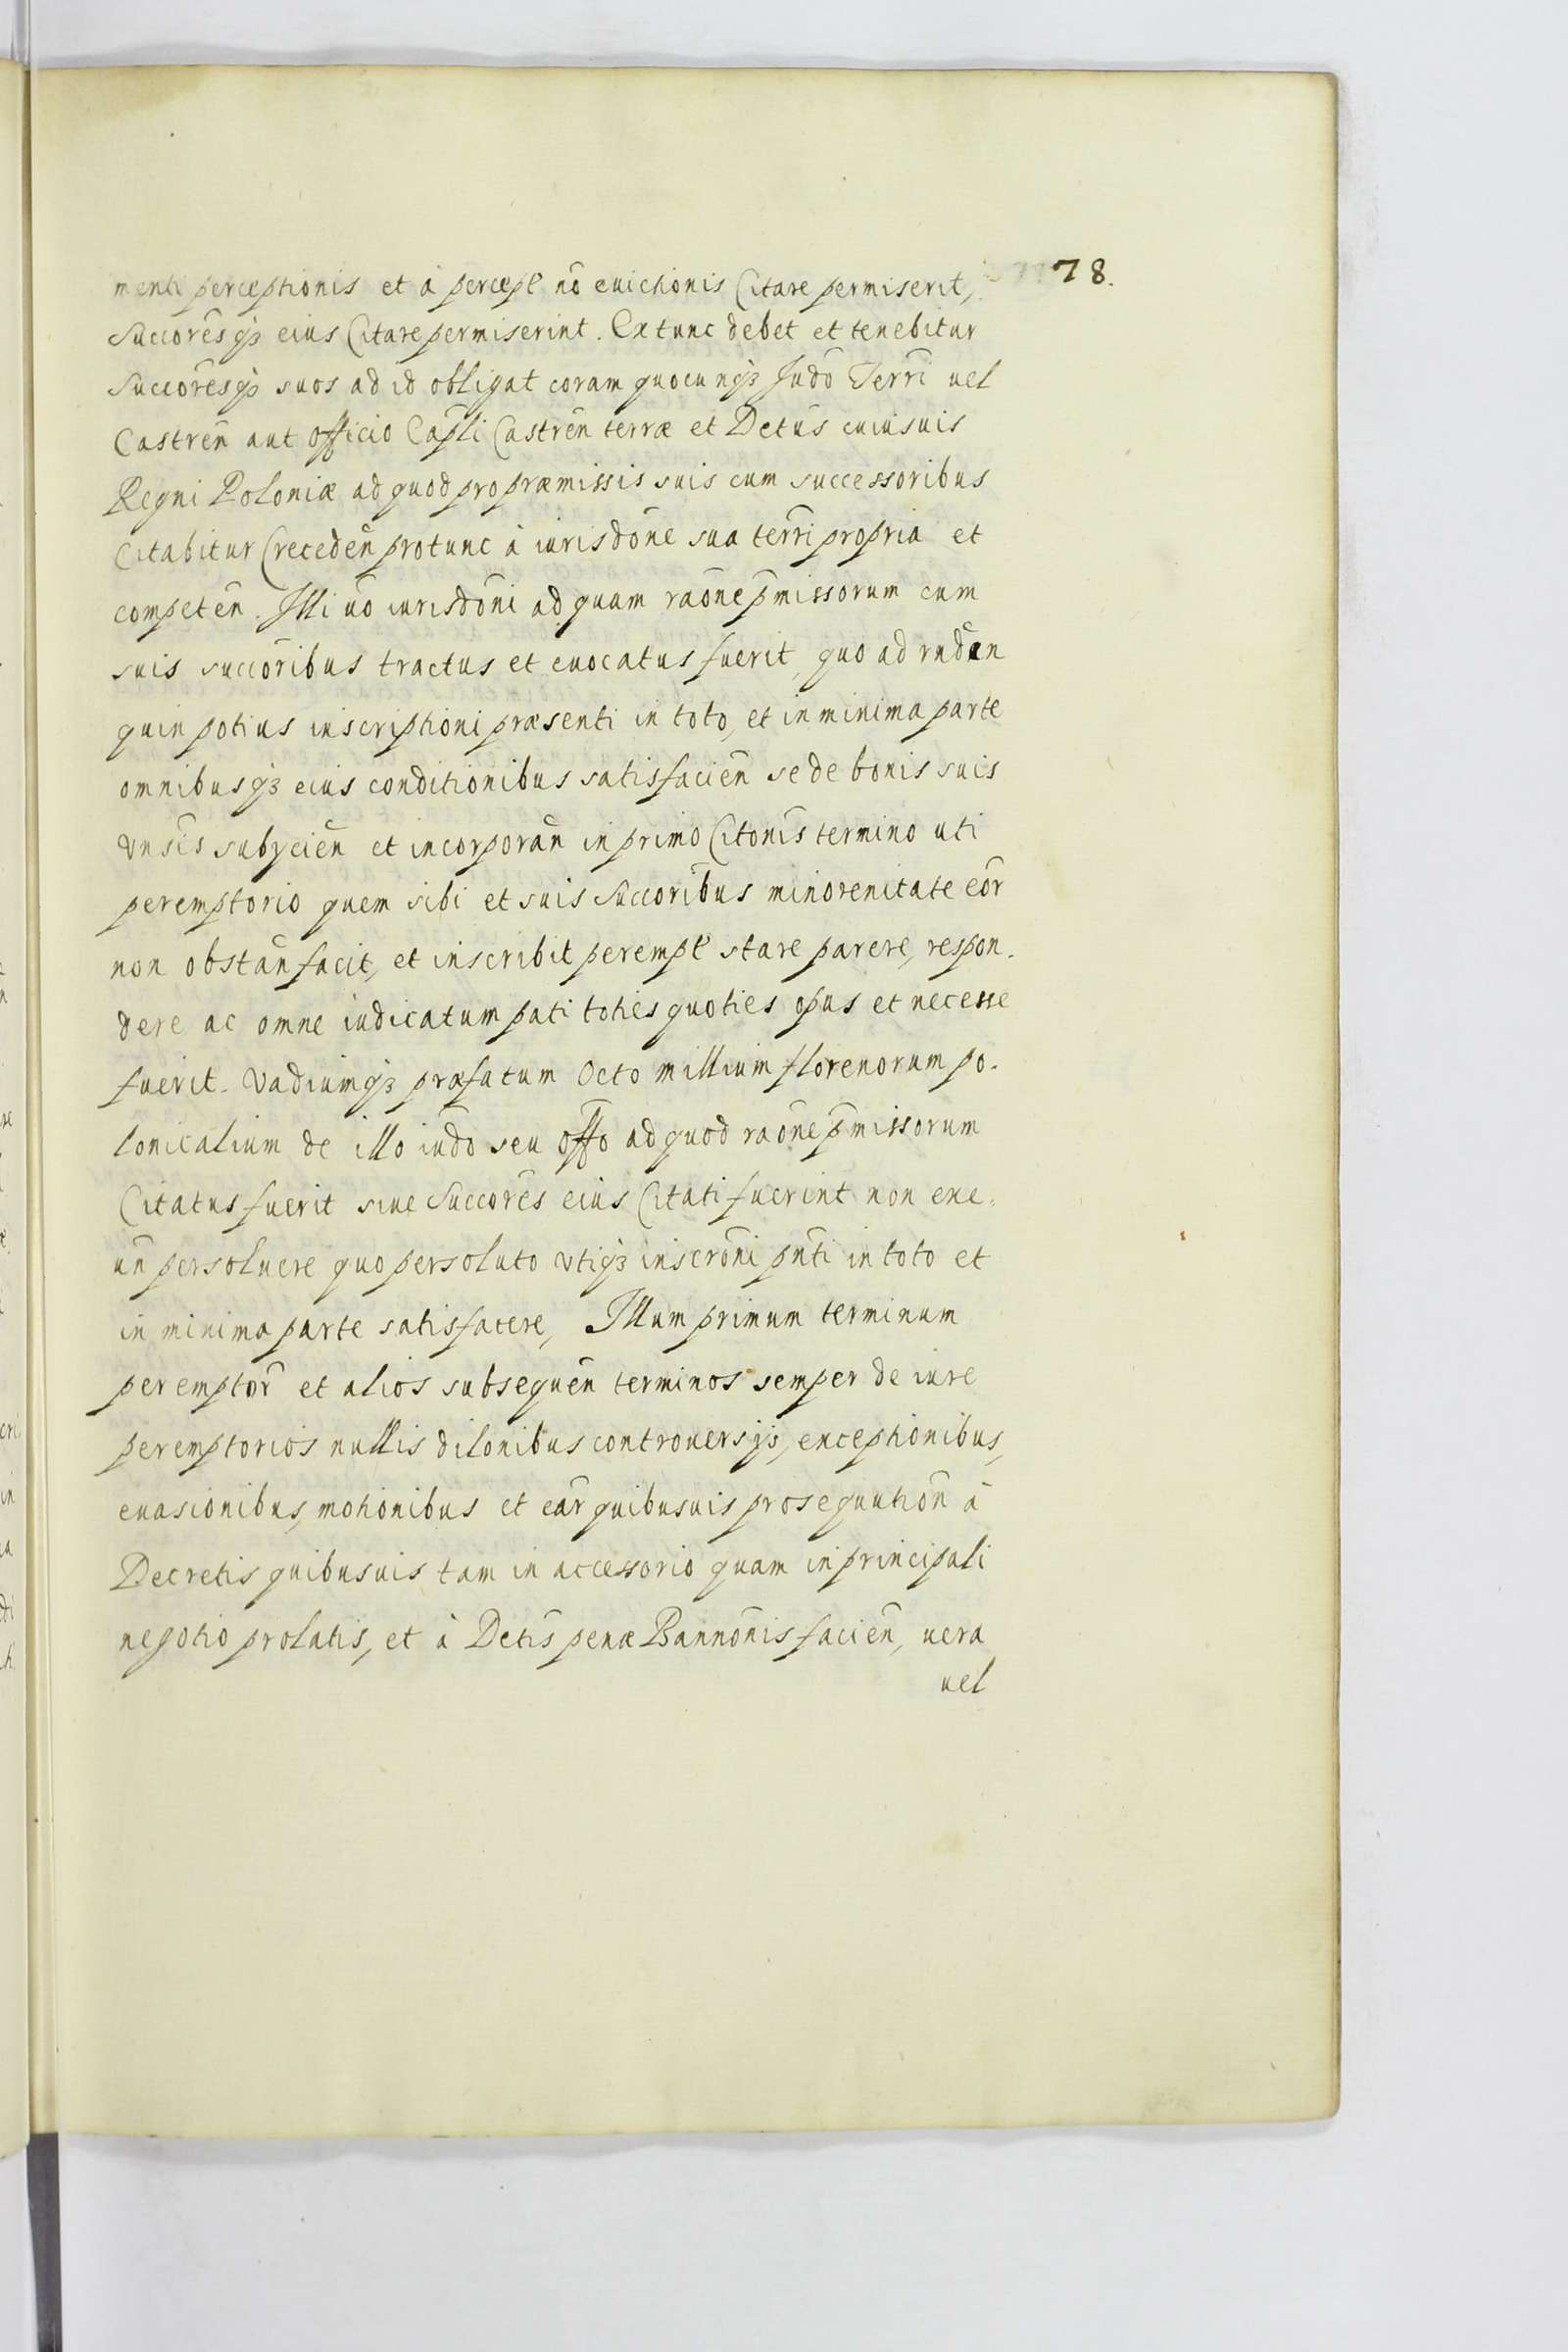 78.
menti perceptionis et à percept nō euictionis Citare permiserit,
Succorēsqꝫ eius Citare permiserint. Extunc debet et tenebitur
Succorēsqꝫ suos ad id obligat coram quocunqꝫ Judō Terrī uel
Castreñ aut officio Capli Castreñ terræ et Detūs cuiusuis
Regni Poloniæ ad quod pro præmissis suis cum successoribus
Citabitur (recedeñ protunc à iurisdōne sua terrī propria et
competeñ. Illi uō iurisdōni ad quam raōne p̄missorum cum
suis succoribus tractus et euocatus fuerit, quo ad
quin potius inscriptioni præsenti in toto, et in minima parte
omnibusqꝫ eius conditionibus satisfacieñ se de bonis suis
vnsīs subycieñ et incorporañ in primo Citonīs termino uti
peremptorio quem sibi et suis Succoribus minorenitate eōr
non obstañ facit, et inscribit perempt stare parere, respon-
dere ac omne iudicatum pati toties quoties opus et necesse
fuerit. Vadiumqꝫ præfatum Octo millium florenorum po-
lonicalium de illo iudō seu offō ad quod raōne p̄missorum
Citatus fuerit siue Succorēs eius Citati fuerint non exe-
uñ persoluere quo persoluto vtiqꝫ inscrōni pn̄ti in toto et
in minima parte satisfacere, Illum primum terminum
peremptōr et alios subsequeñ terminos semper de iure
peremptorios nullis dilonibus controuersijs, exceptionibus,
euasionibus, motionibus et eār quibusuis prosequutioñ à
Decretis quibusuis tam in accessorio quam in principali
negotio prolatis, et à Detīs penæ Bannōnis facieñ, uera
uel